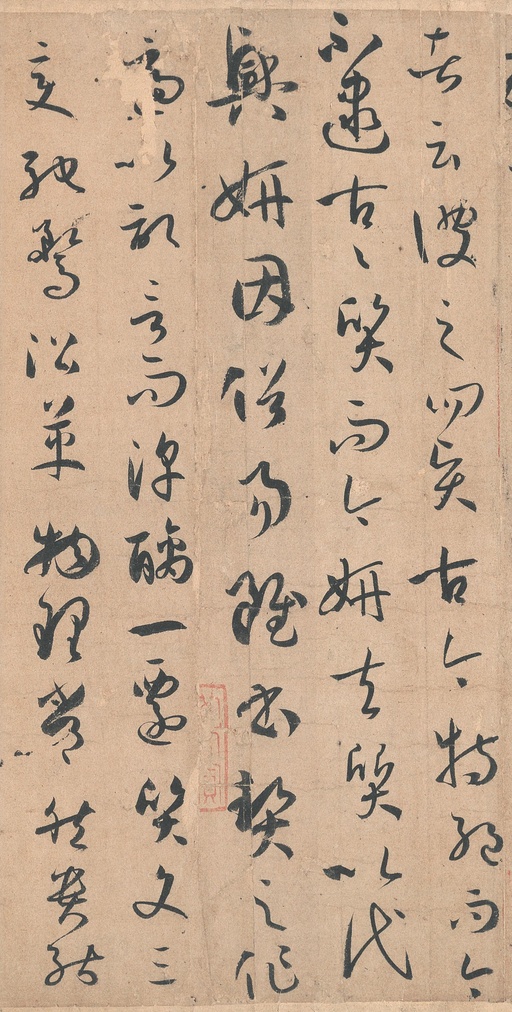 者云彼之四賢古今特絕而今
不逮古々質而今妍夫質以代
興妍因俗易雖書契之作
適以記言而淳醨一遷質文三
變馳騖沿革物理常然貴能